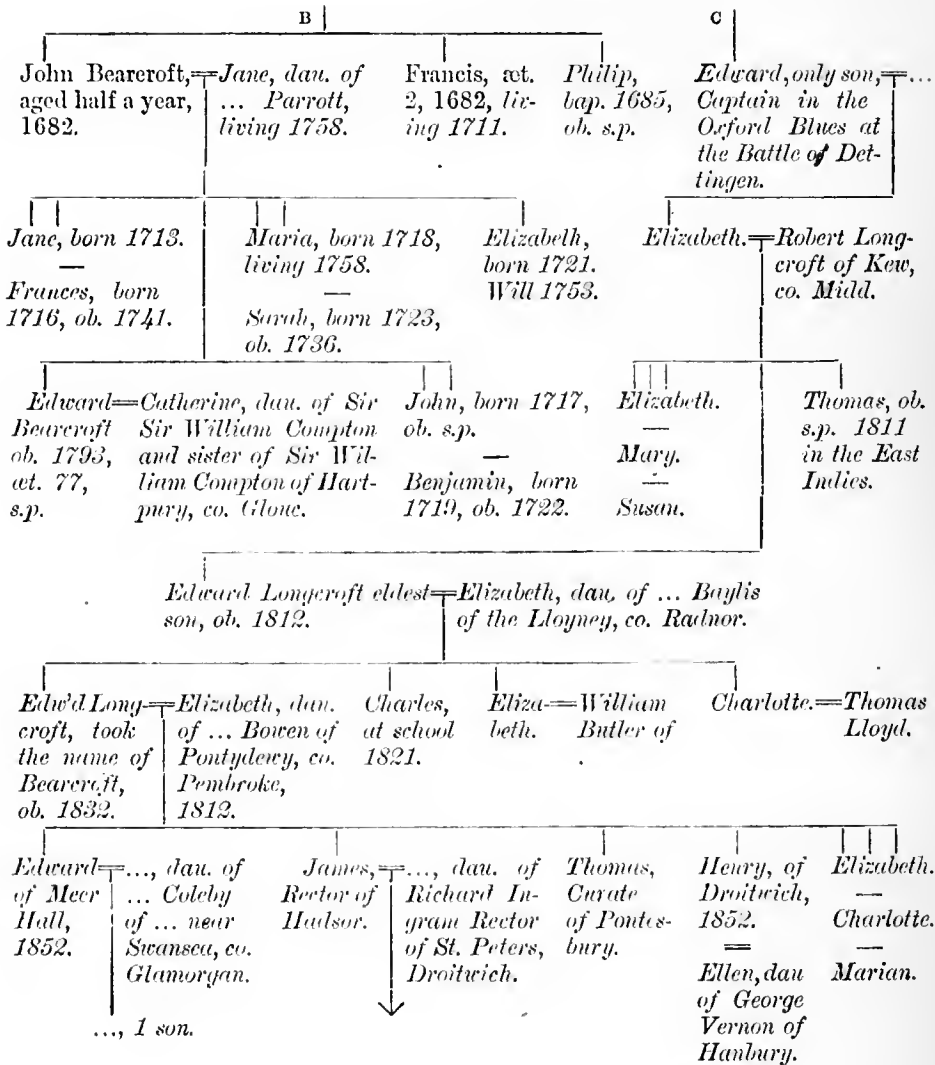 B
C
John Bearcroft,
aged half a year,
1682.
Jane, dau. of
... Parrott,
living 1758.
Francis, æt.
2, 1682, liv-
ing 1711.
Philip,
bap. 1685,
ob. s.p.
Edward, only son,
Captain in the
Oxford Blues at
the Battle of Det-
tingen.
...
Jane, born 1713.
—
Frances, born
1716, ob. 1741.
Maria, born 1718,
living 1758.
—
Sarah, born 1723,
ob. 1736.
Elizabeth,
born 1721.
Will 1753.
Elizabeth.
Robert Long-
croft of Kew,
co. Midd.
Edward
Bearcroft
ob. 1793,
æt. 77,
s.p.
Catherine, dau. of Sir
Sir William Compton
and sister of Sir Wil-
liam Compton of Hart-
pury, co. Glouc.
John, born 1717,
ob. s.p.
—
Benjamin, born
1719, ob. 1722.
Elizabeth.
—
Mary.
—
Susan.
Thomas, ob.
s.p. 1811
in the East
Indies.
Edward Longcroft eldest
son, ob. 1812.
Elizabeth, dau. of ... Baylis
of the Lloyney, co. Radnor.
Edw'd Long-
croft, took
the name of
Bearcroft,
ob. 1832.
Elizabeth, dau.
of ... Bowen of
Pontydewy, co.
Pembroke,
1812.
Charles,
at school
1821.
Eliza-
beth.
William
Butler of
.
Charlotte.
Thomas
Lloyd.
Edward
of Meer
Hall,
1852.
..., dau. of
... Coleby
of ... near
Swansea, co.
Glamorgan.
..., 1 son.
James,
Rector of
Hadsor.
..., dau. of
Richard In-
gram Rector
of St. Peters,
Droitwich.
Thomas,
Curate
of Pontes-
bury.
Henry, of
Droitwich,
1852.
=
Ellen, dau
of George
Vernon of
Hanbury.
Elizabeth.
—
Charlotte.
—
Marian.